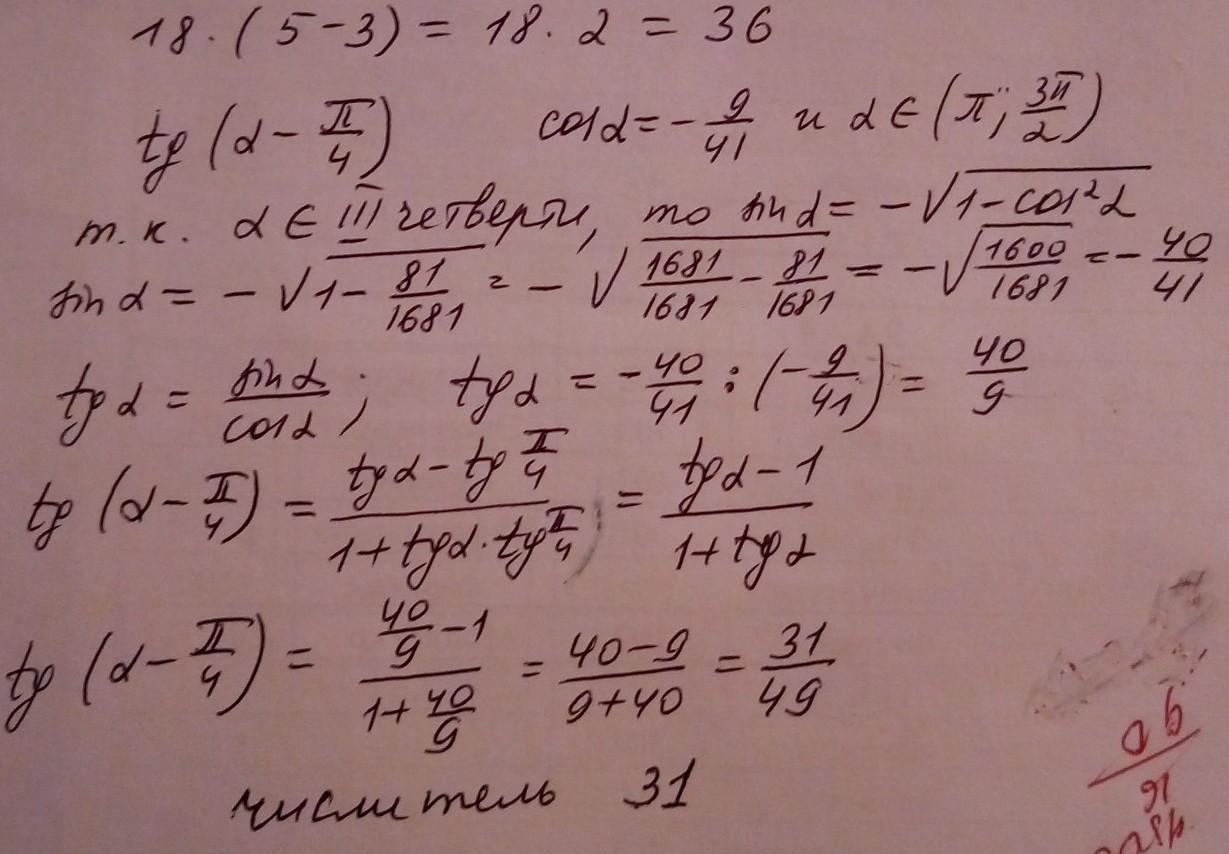 18 · (5 - 3) = 18 · 2 = 36
tg (α - π/4) cos α = - 9/41 и α ∈ (π; 3π/2)
т.к. α ∈ III четверти, то sin α = - √(1 - cos² α)
sin α = - √(1 - 81/1681) = - √(1681/1681 - 81/1681) = - √(1600/1681) = - 40/41
tg α = sin α / cos α ; tg α = - 40/41 : (- 9/41) = 40/9
tg (α - π/4) = (tg α - tg π/4) / (1 + tg α · tg π/4) = (tg α - 1) / (1 + tg α)
tg (α - π/4) = (40/9 - 1) / (1 + 40/9) = (40 - 9) / (9 + 40) = 31/49
числитель 31